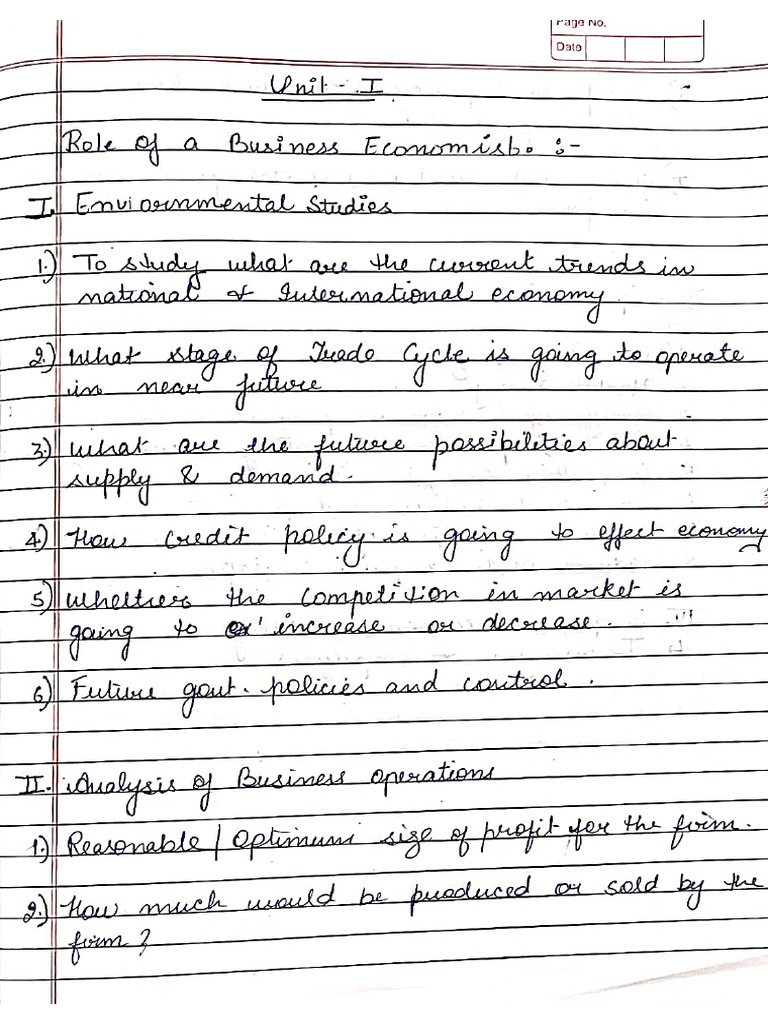 Page No.
Date
Unit - I
Role of a Business Economist. :-
I. Enviornmental Studies
1.) To study what are the current trends in
national & International economy
2.) What stage of Trade Cycle is going to operate
in near future
3.) What are the future possibilities about
supply & demand.
4.) How credit policy is going to effect economy
5) Whether the competition in market is
going to increase or decrease.
6) Future govt. policies and control.
II. Analysis of Business operations
1.) Reasonable / Optimum size of profit for the firm.
2.) How much would be produced or sold by the
firm?